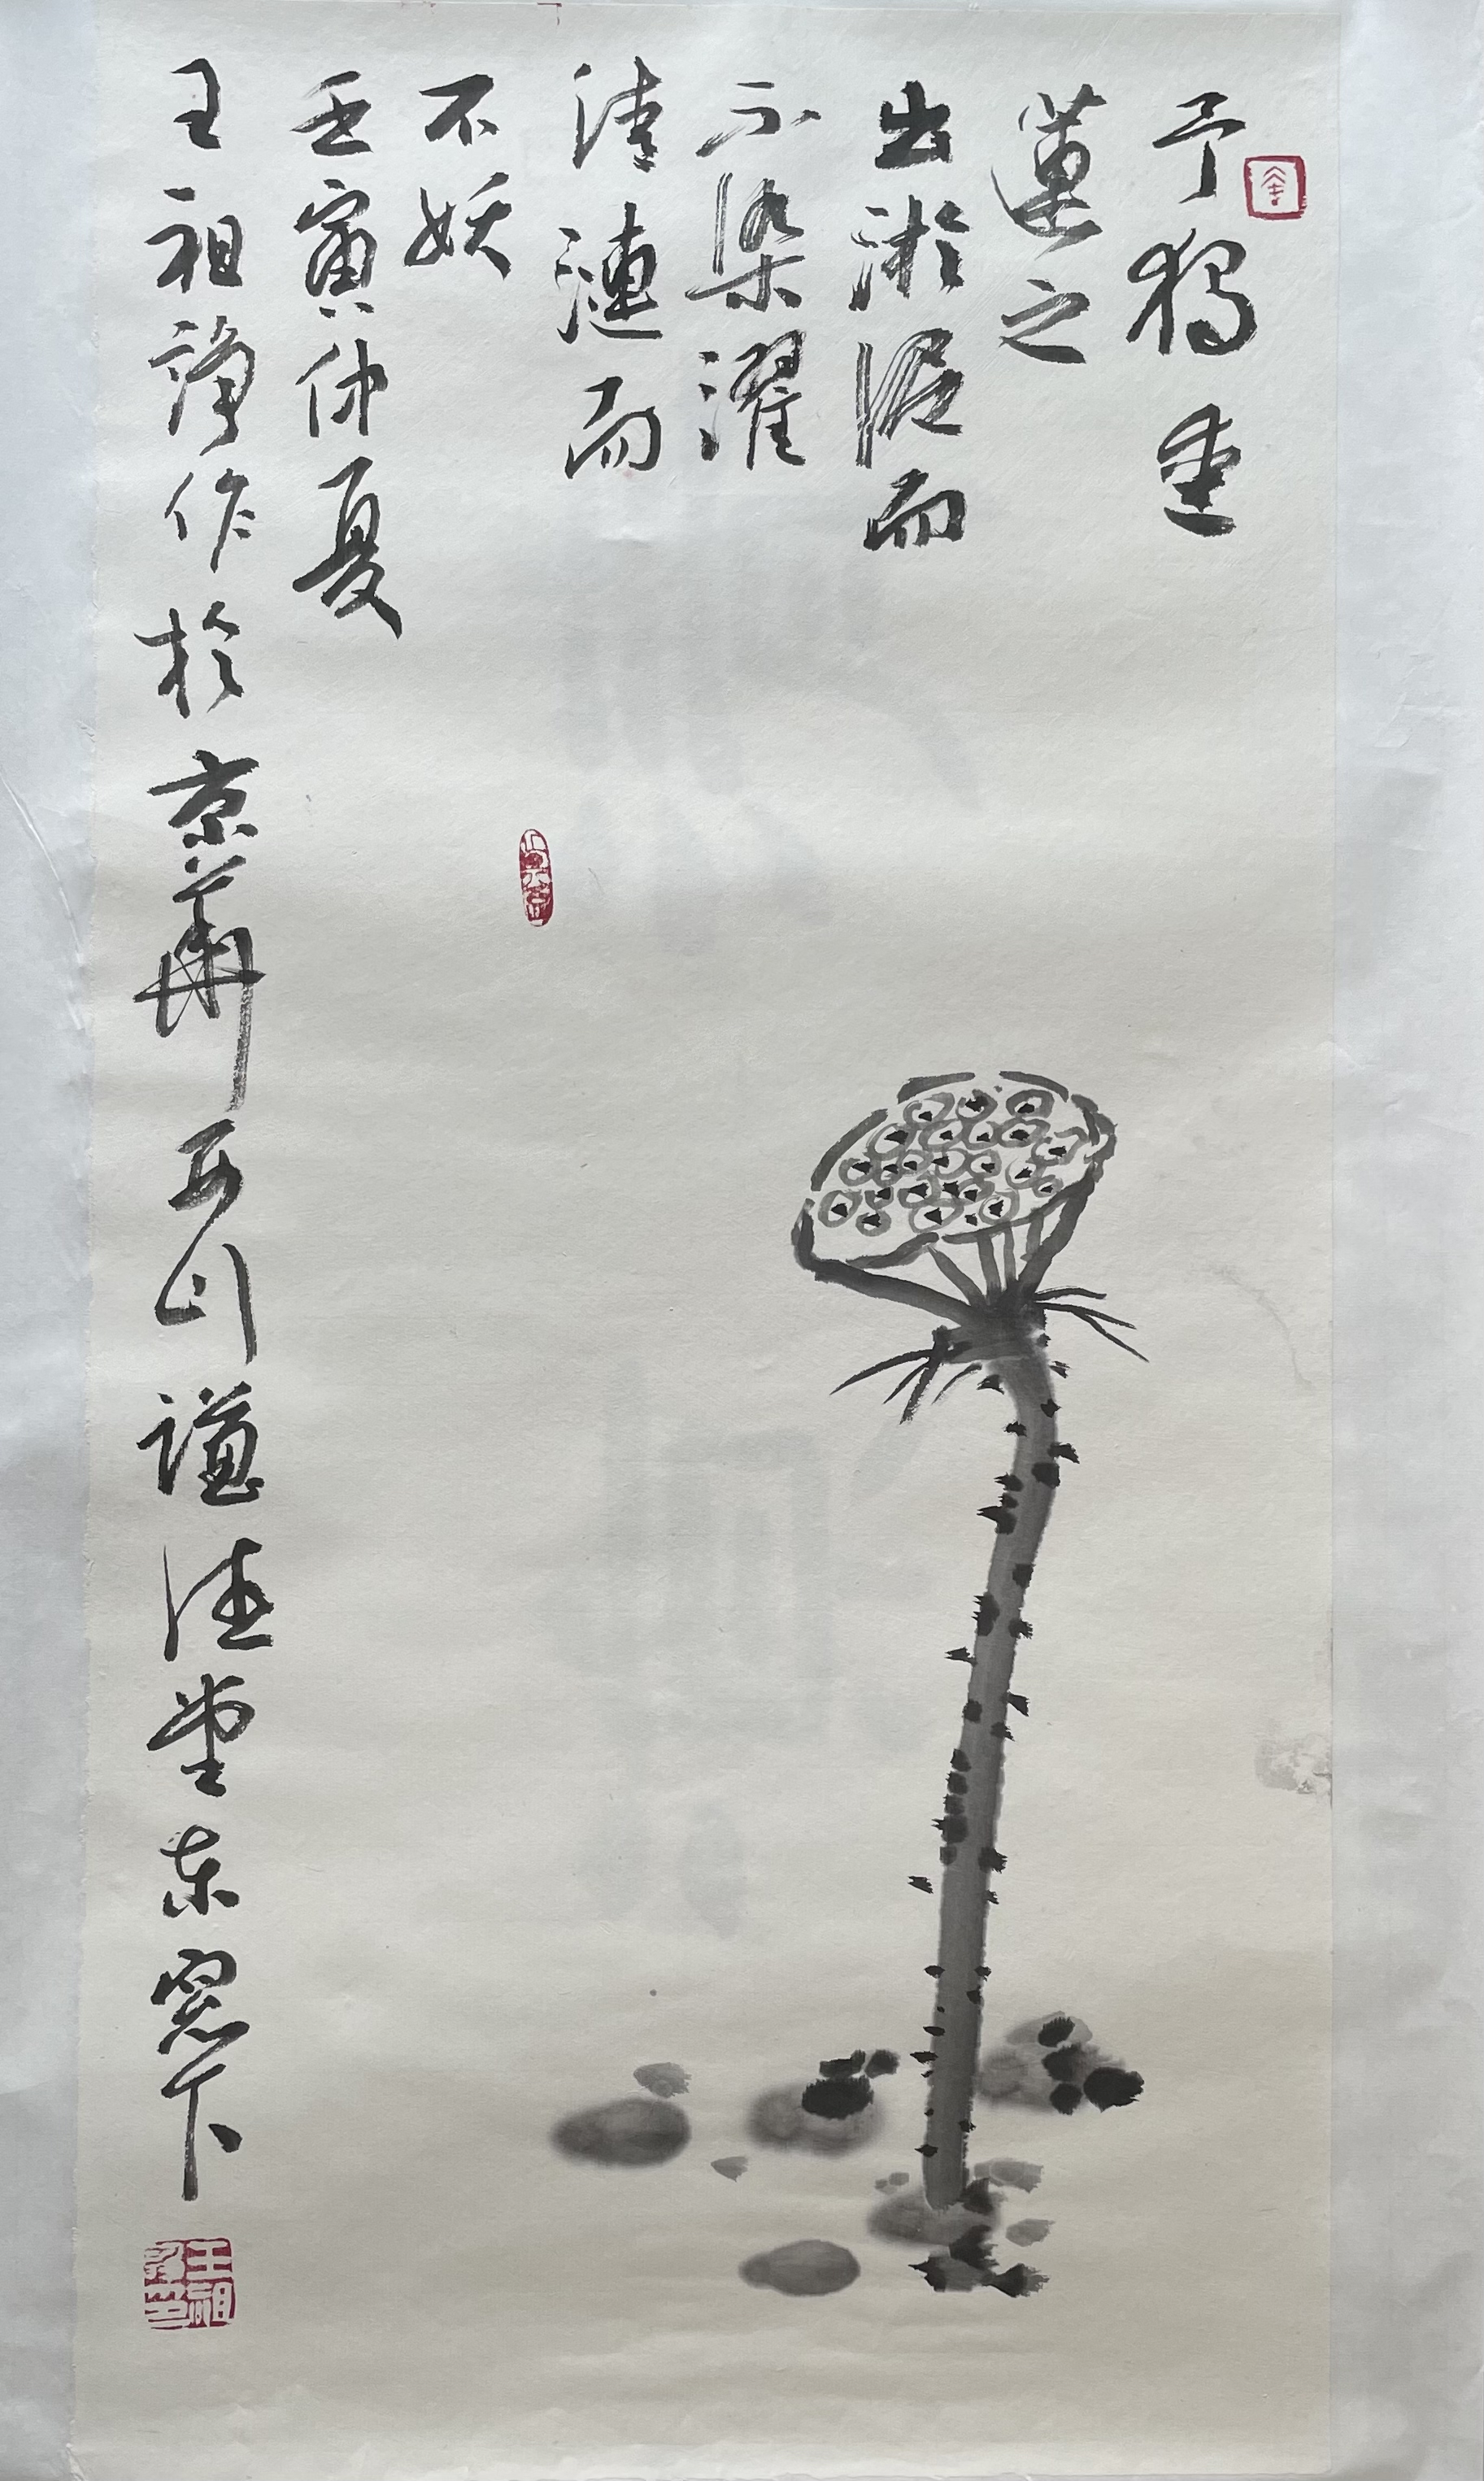 予獨愛
蓮之
出淤泥而
不染濯
清漣而
不妖
壬寅仲夏
王祖諍作於京華西山謙德堂东窓下
王祖